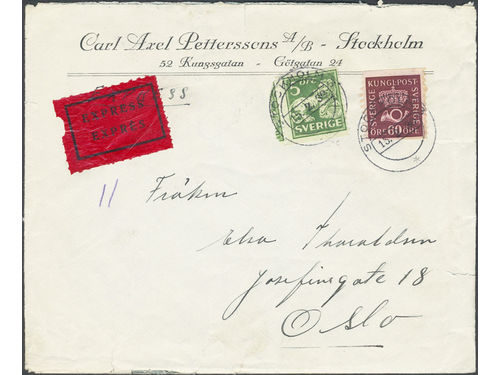 Carl Axel Petterssons A/B - Stockholm
52 Kungsgatan - Götgatan 24
EXPRESS
EXPRÈS
88
5 ÖRE
SVERIGE
SVERIGE KUNGL. POST.
ÖRE 60 ÖRE
STO
11
Fröken
Elsa Thoraldsen
Josefinegate 18
Oslo